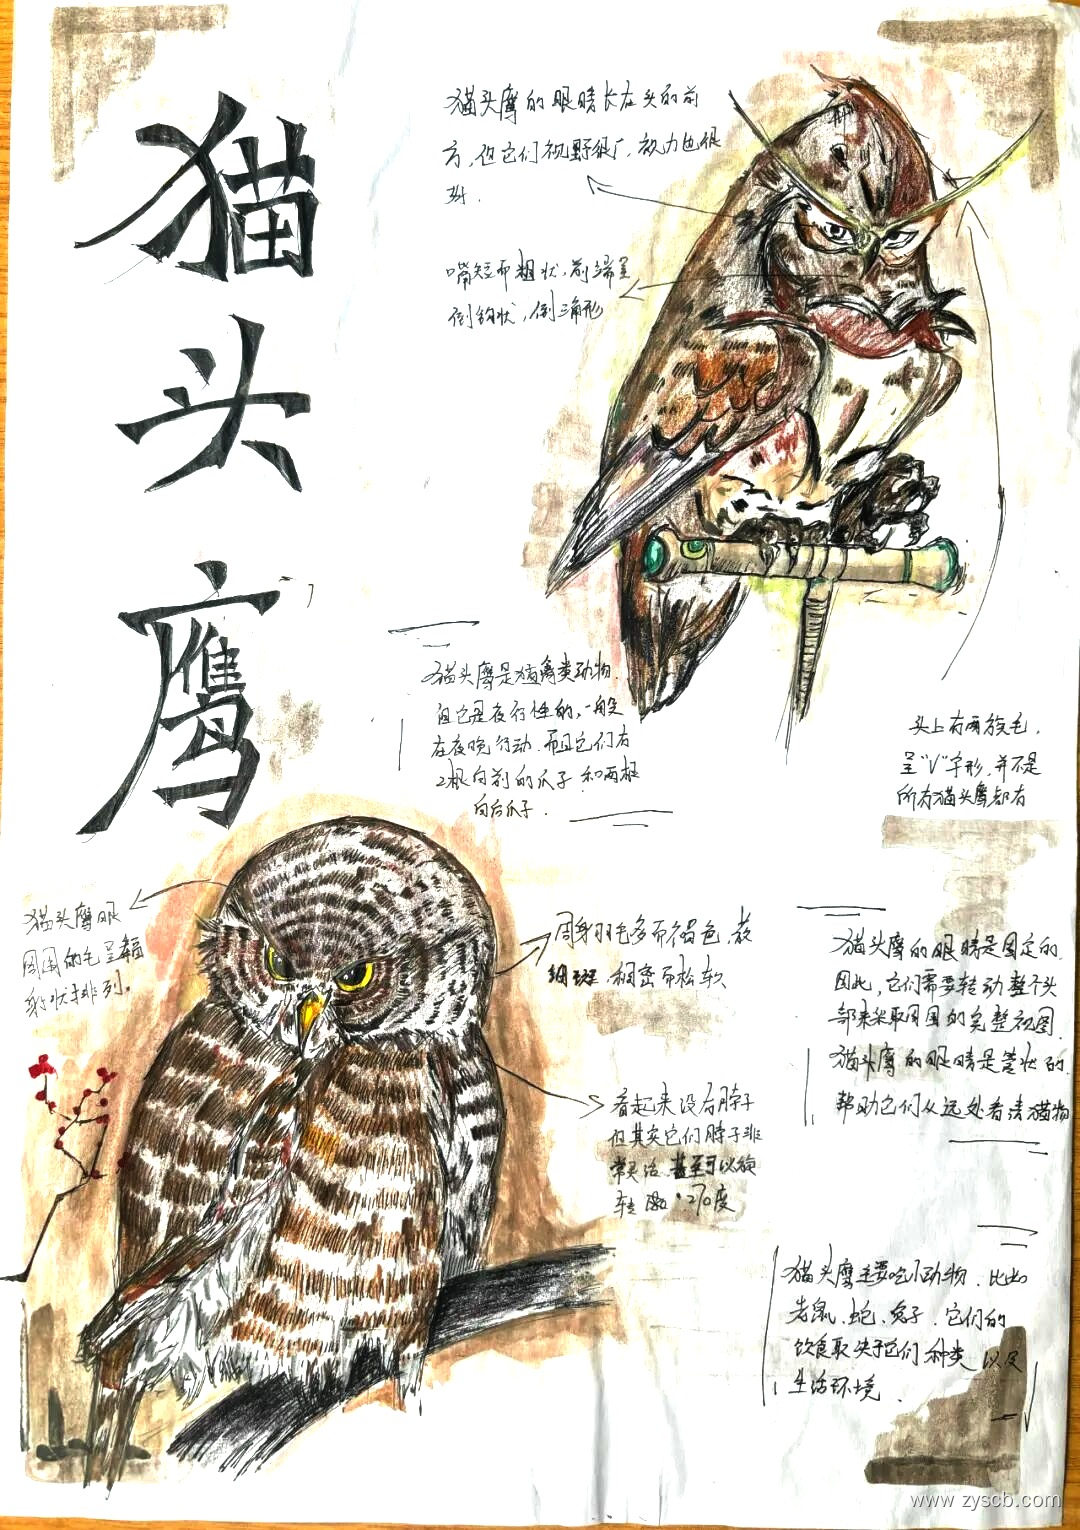 猫
头
鹰
猫头鹰的眼睛长在头的前
方,但它们视野很广,
嘴短而粗状,前端呈
倒钩状,倒三角形
猫头鹰是猛禽类动物.
且它是夜行性的,一般
在夜晚行动.而且它们有
2根向前的爪子 和两根
向后爪子.
头上有两族毛,
呈"V"字形,并不是
所有猫头鹰都有
猫头鹰眼
周围的毛呈辐
射状排列。
周身羽毛多而褐色,散
细斑,稠密而松软
看起来没有脖子
但其实它们脖子非
常灵活,甚至可以
转 270度
猫头鹰的眼睛是固定的.
因此,它们需要转动整个头
部来采取周围的完整视图
猫头鹰的眼睛是管状的,
帮助它们从远处看清猎物
猫头鹰主要吃小动物,比如
老鼠、蛇、兔子.它们的
饮食取决于它们种类 以及
生活环境.
www.zyscb.com